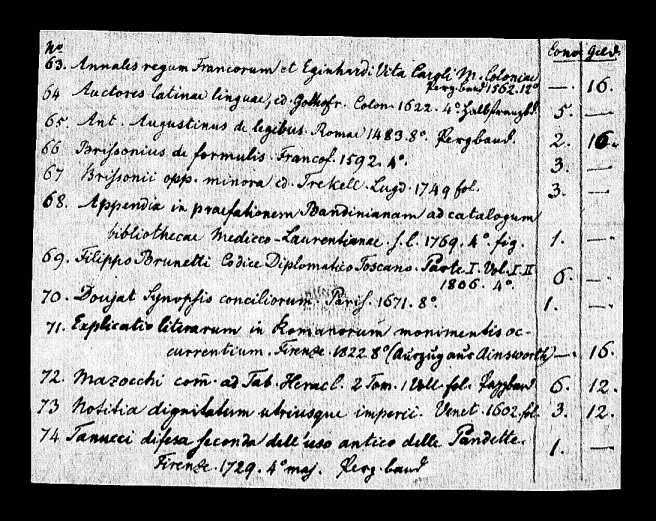 No. Conv. Geld.
63. Annales regum Francorum et Eginhardi Vita Caroli M. Coloniae
Pergband 1562. 12° — 16.
64 Auctores latinae linguae, ed. Gothofr. Colon. 1622. 4°. Halbfranzbd. 5. —
65. Ant. Augustinus de legibus. Romae 1483. 8°. Pergband. 2. 16.
66 Brissonius de formulis. Francof. 1592. 4°. 3. —
67 Brissonii opp. minora ed. Trekell. Lugd. 1749 fol. 3. —
68. Appendix in praefationem Bandinianam ad catalogum
bibliothecae Mediceo-Laurentianae. s. l. 1769. 4°. fig. 1. —
69. Filippo Brunetti Codice Diplomatico Toscano. Parte I. Vol. I. II
1806. 4°. 6. —
70. Doujat Synopsis conciliorum. Paris. 1671. 8°. 1. —
71. Explicatio literarum in Romanorum monimentis oc-
currentium. Firenze. 1822. 8° (Auszug aus Ainsworth) — 16.
72. Mazocchi com̄. ad Tab. Heracl. 2 Tom. 1 Voll. fol. Pappband. 6. 12.
73 Notitia dignitatum utriusque imperii. Venet. 1602. fol. 3. 12.
74 Tanucci difesa seconda dell'uso antico delle Pandette.
Firenze. 1729. 4° maj. Pergband 1. —